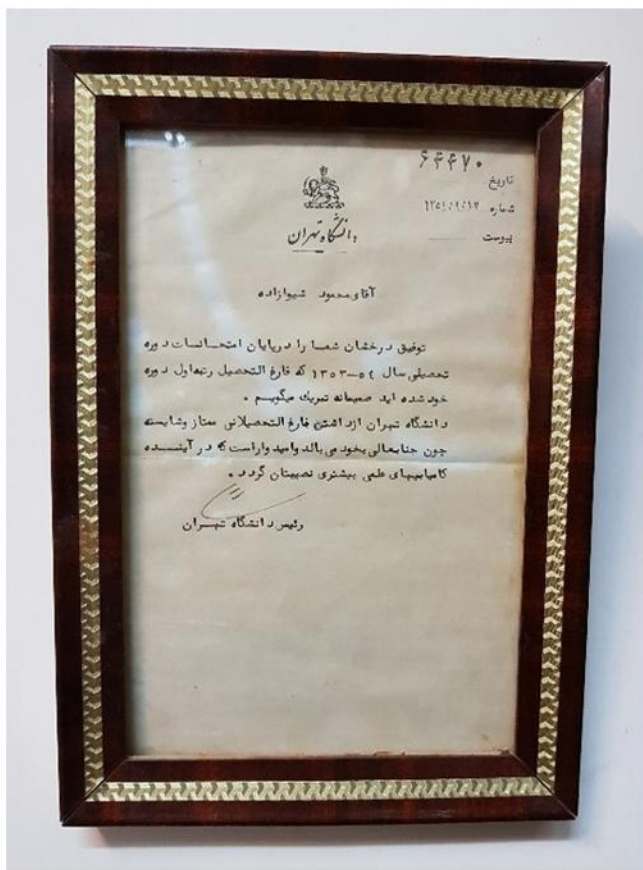 ۶۴۴۷۰
تاریخ
شماره ۱۳۵۴،۹،۱۲
پیوست
دانشگاه تهران
آقای محمود شیوازاده
توفیق درخشان شما را درپایان امتحانات دوره
تحصیلی سال ۵۴-۱۳۵۳ که فارغ التحصیل رتبه اول دوره
خود شده اید صمیمانه تبریک میگویم .
دانشگاه تهران ازداشتن فارغ التحصیلانی ممتاز وشایسته
چون جنابعالی بخود می بالد وامیدواراست که در آینده
کامیابیهای علمی بیشتری نصیبتان گردد .
رئیس دانشگاه تهران